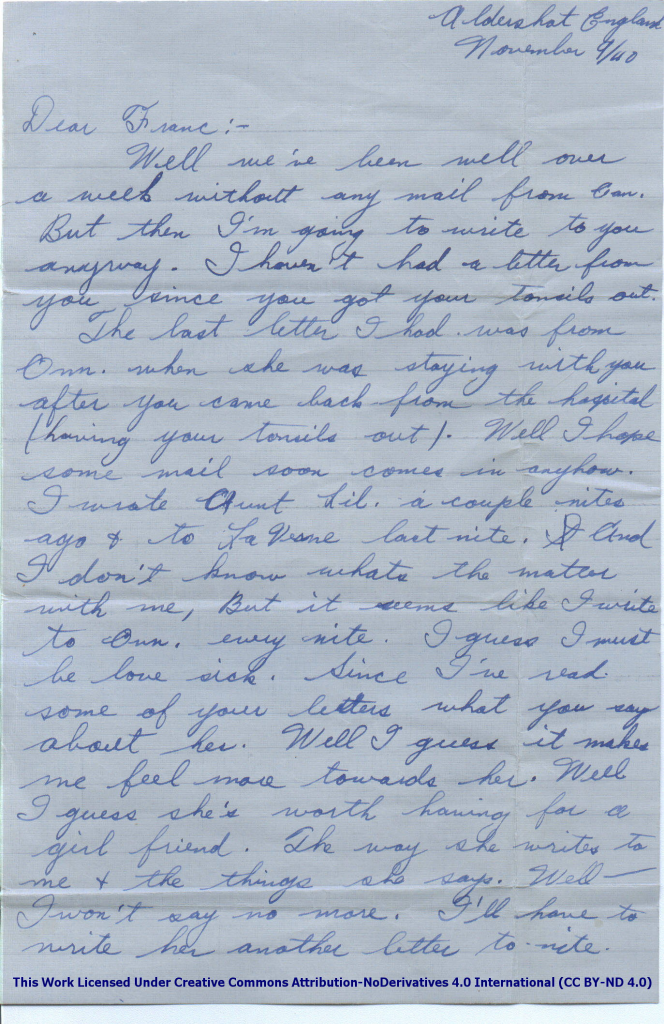 Aldershot England
November 9/40
Dear Franc:-
Well we've been well over
a week without any mail from Can.
But then I'm going to write to you
anyway. I haven't had a letter from
you since you got your tonsils out.
The last letter I had was from
Onn. when she was staying with you
after you came back from the hospital
(having your tonsils out). Well I hope
some mail soon comes in anyhow.
I wrote Aunt Lil. a couple nites
ago & to La Verne last nite. And
I don't know whats the matter
with me, But it seems like I write
to Onn. every nite. I guess I must
be love sick. Since I've read
some of your letters what you say
about her. Well I guess it makes
me feel more towards her. Well
I guess she's worth having for a
girl friend. The way she writes to
me & the things she says. Well—
I won't say no more. I'll have to
write her another letter to-nite.
This Work Licensed Under Creative Commons Attribution-NoDerivatives 4.0 International (CC BY-ND 4.0)